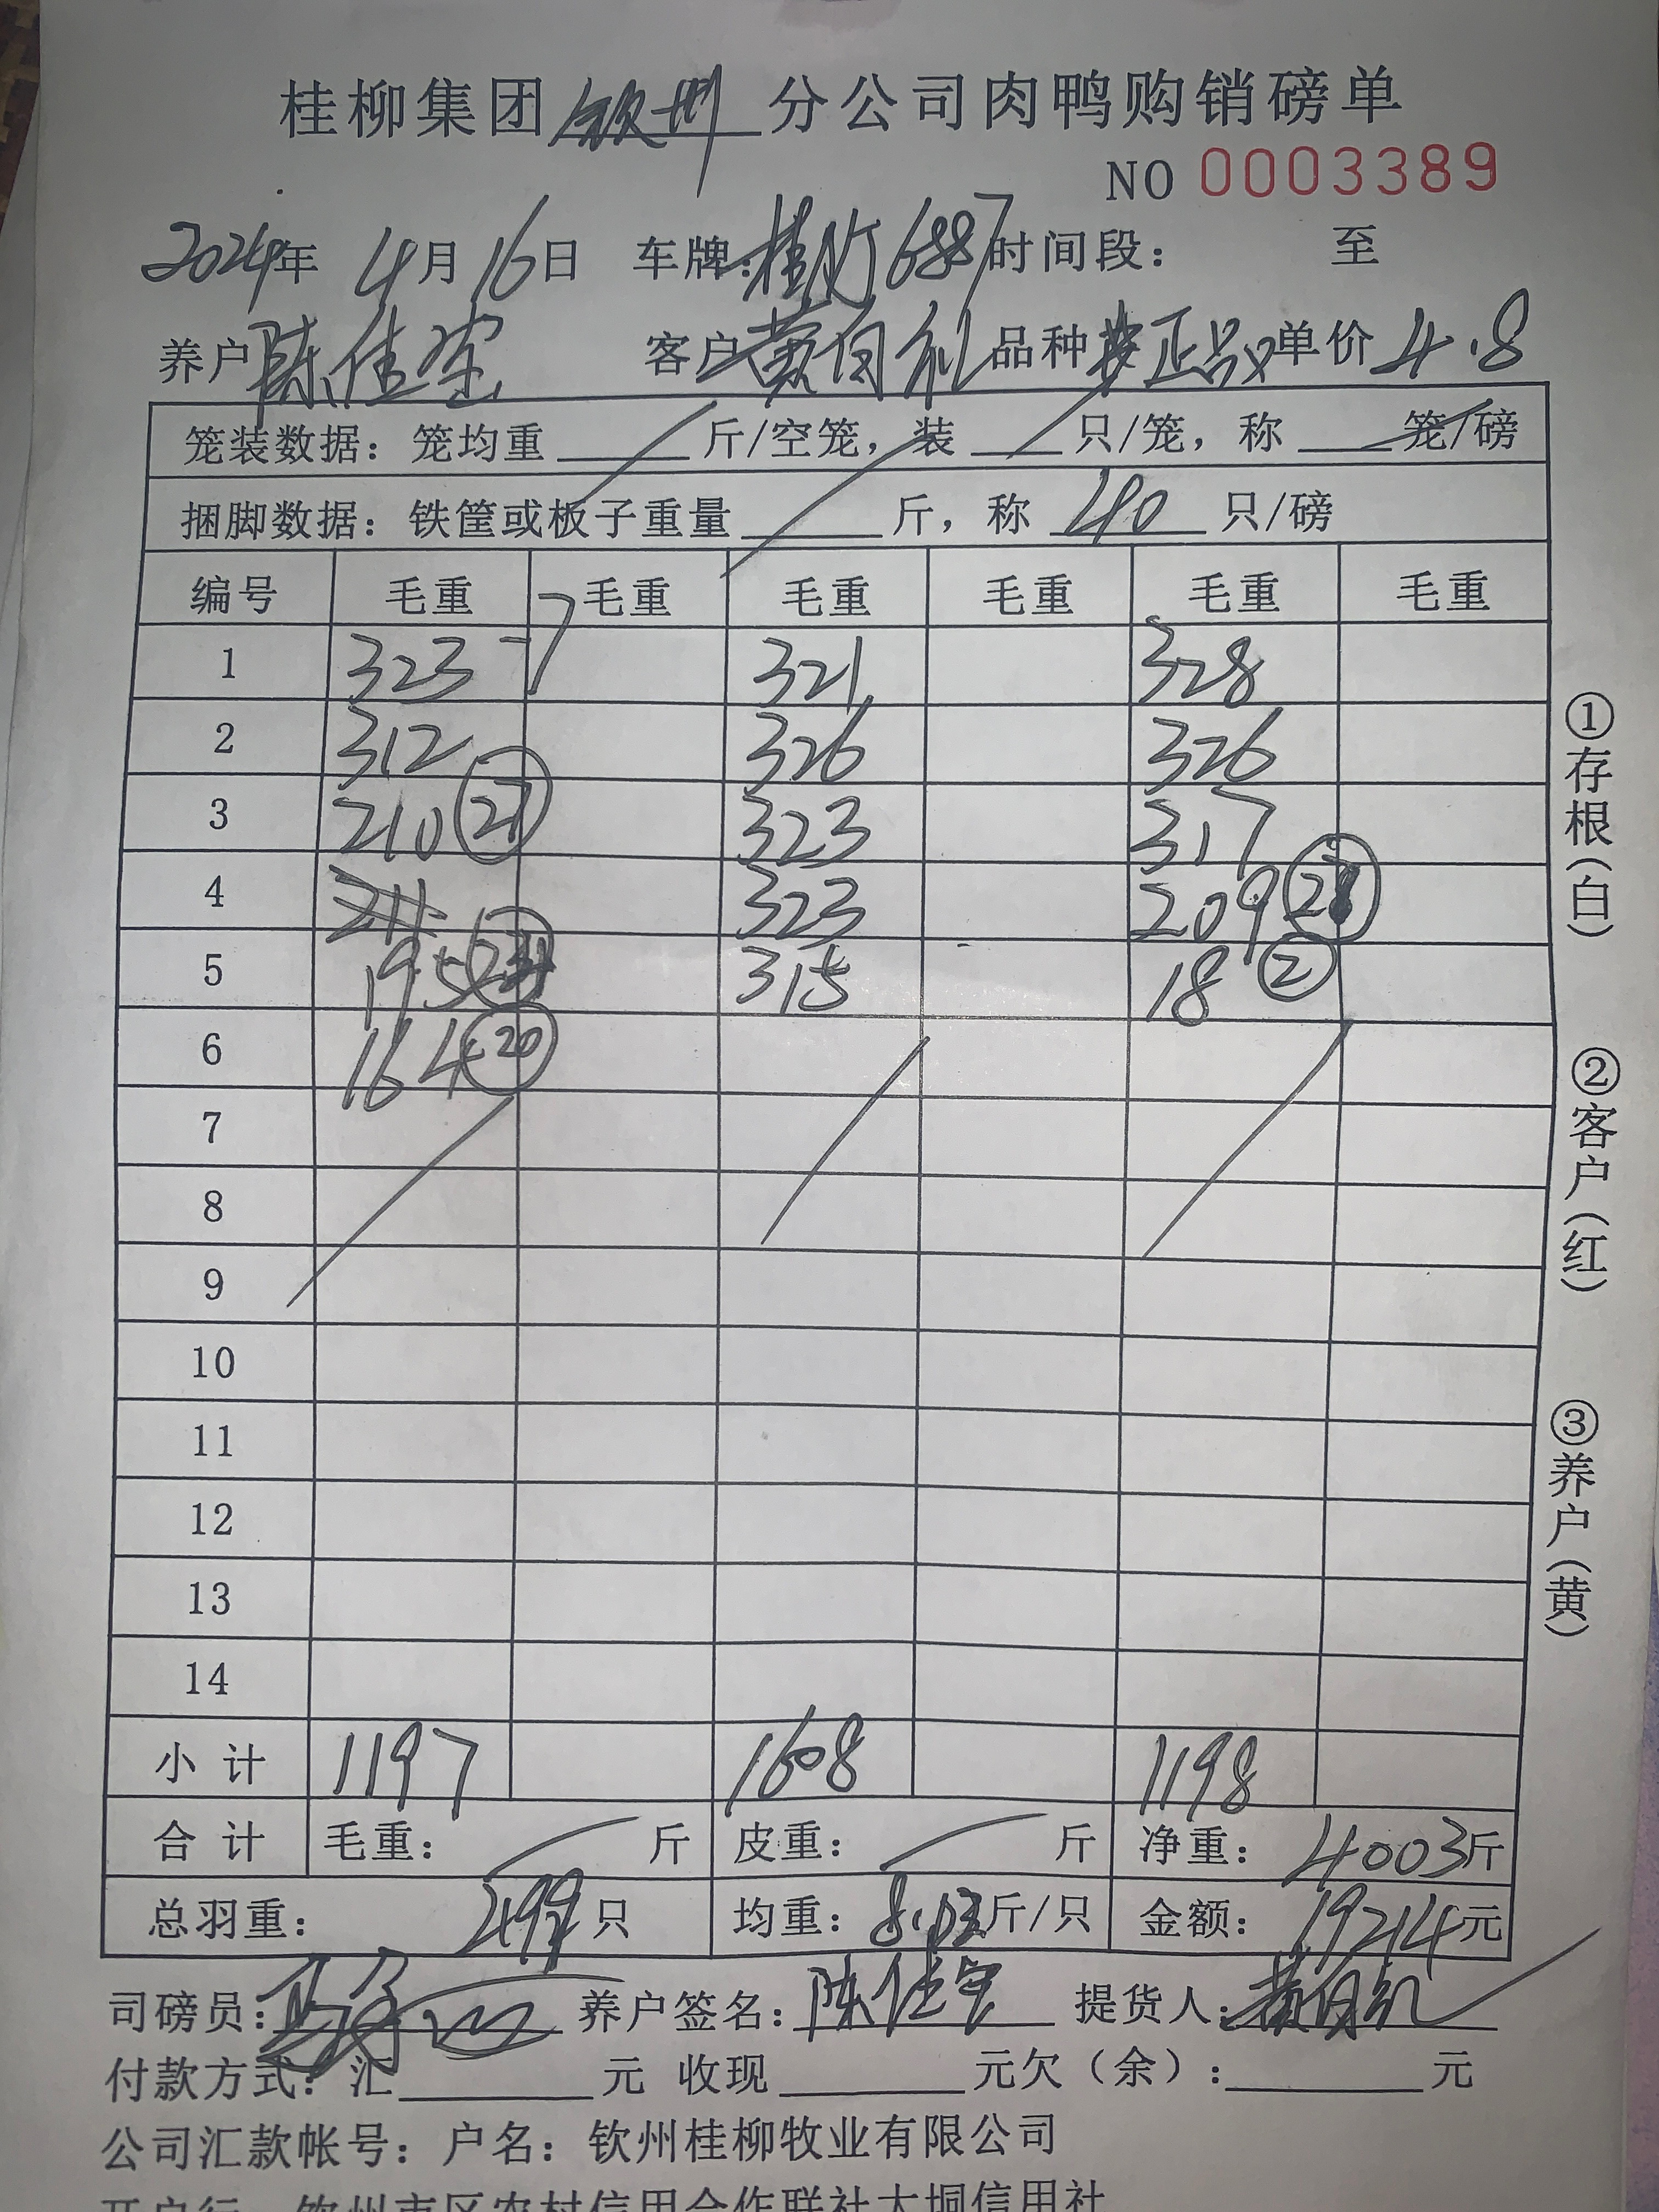 桂柳集团钦州分公司肉鸭购销磅单
NO 0003389
2024年 4月16日 车牌: 桂N 6887 时间段: 至
养户 陈佳 客户 黄自礼 品种 正 单价 4.8
笼装数据: 笼均重 斤/空笼, 装 只/笼, 称 笼/磅
捆脚数据: 铁筐或板子重量 斤, 称 40 只/磅
编号 毛重 毛重 毛重 毛重 毛重 毛重
1 323 -7 321 328
2 312 326 326
3 210 27 323 317
4 211 323 209
5 195 315 18 2
6 164 20
7
8
9
10
11
12
13
14
小计 1197 1608 1198
合计 毛重: 斤 皮重: 斤 净重: 4003斤
总羽重: 499只 均重: 8.03斤/只 金额: 19214元
司磅员: 养户签名: 陈佳 提货人: 黄自礼
付款方式: 汇 元 收现 元欠(余): 元
公司汇款帐号: 户名: 钦州桂柳牧业有限公司
开户行: 钦州市区农村信用合作联社大垌信用社
①存根(白)
②客户(红)
③养户(黄)